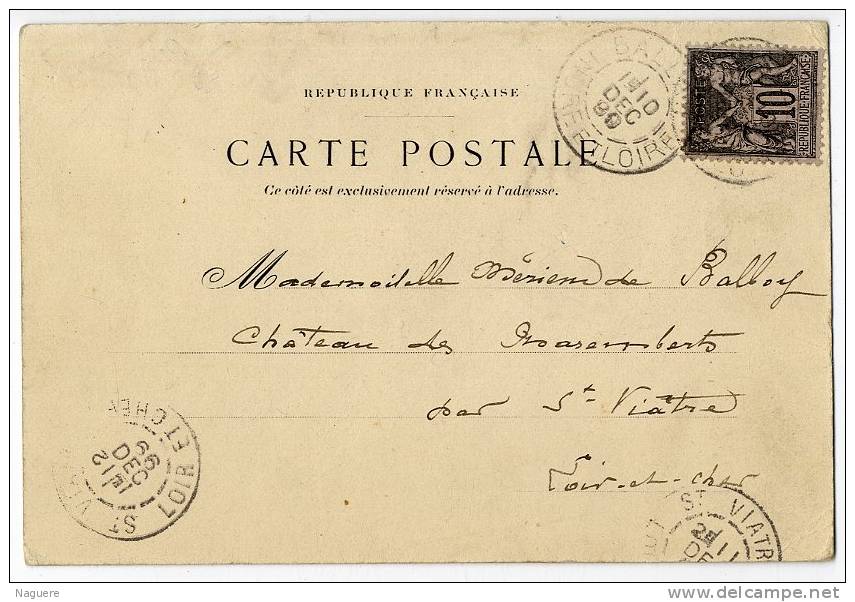 REPUBLIQUE FRANÇAISE
CARTE POSTALE
Ce côté est exclusivement réservé à l'adresse.
POSTE
10
REPUBLIQUE FRANÇAISE
BALL
10
DEC
99
ET LOIRE
Mademoiselle de Balloy
Château des
par St-Viâtre
Loir-et-cher
ST VIA
LOIR ET CHER
DEC
99
ST VIATR
11
DE
Naguere
www.delcampe.net